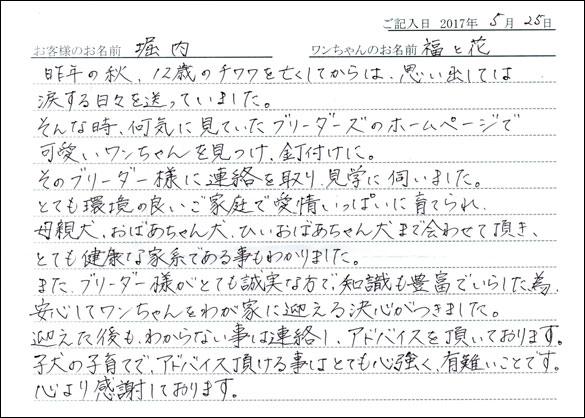 ご記入日 2017年 5月 25日
お客様のお名前 堀内 ワンちゃんのお名前 福と花
昨年の秋、12歳のチワワを亡くしてからは、思い出しては
涙する日々を送っていました。
そんな時、何気に見ていたブリーダーズのホームページで
可愛いワンちゃんを見つけ、釘付けに。
そのブリーダー様に連絡を取り、見学に伺いました。
とても環境の良いご家庭で愛情いっぱいに育てられ、
母親犬、おばあちゃん犬、ひいおばあちゃん犬まで会わせて頂き、
とても健康な家系である事もわかりました。
また、ブリーダー様がとても誠実な方で、知識も豊富でいらした為、
安心してワンちゃんをわが家に迎える決心がつきました。
迎えた後も、わからない事は連絡し、アドバイスを頂いております。
子犬の子育てで、アドバイス頂ける事はとても心強く、有難いことです。
心より感謝しております。